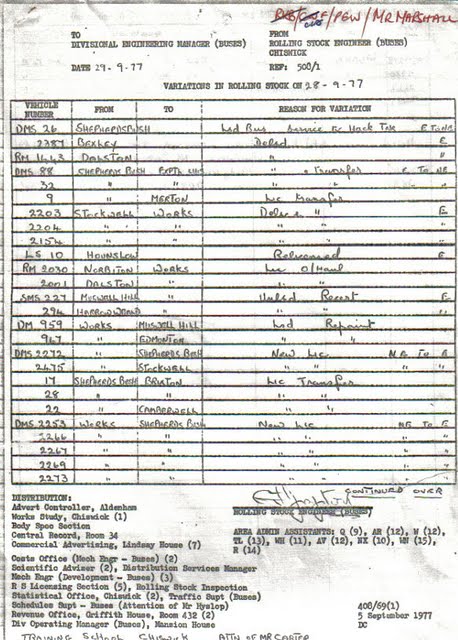 PGW/MR MARSHALL
TO FROM
DIVISIONAL ENGINEERING MANAGER (BUSES) ROLLING STOCK ENGINEER (BUSES)
CHISWICK
DATE 29-9-77 REF: 508/1
VARIATIONS IN ROLLING STOCK ON 28-9-77
VEHICLE NUMBER FROM TO REASON FOR VARIATION
DMS 26 SHEPHERDS BUSH Lic Bus Service to E TO NE
2387 BEXLEY E
RM 1443 DALSTON " E
DMS 88 SHEPHERDS BUSH EXPTL " Transfer E TO NE
32 " " " " "
9 " MERTON Lic Transfer
2203 STOCKWELL WORKS " E
2204 " " " " "
2154 " " " " "
LS 10 HOUNSLOW E
RM 2030 NORBITON WORKS Lic O/Haul
2001 DALSTON " " "
SMS 227 MUSWELL HILL " Recert E
294 HARROW WEALD " " " "
DM 959 WORKS MUSWELL HILL Repaint
967 " EDMONTON " "
DMS 2272 " SHEPHERDS BSH New Lic NE TO E
2475 " STOCKWELL " " " "
17 SHEPHERDS BSH BRIXTON Lic Transfer
28 " " " "
22 " CAMBERWELL " "
DMS 2253 WORKS SHEPHERDS BUSH New Lic NE TO E
2266 " " " " " "
2267 " " " " " "
2269 " " " " " "
2273 " " " " " "
CONTINUED OVER
DISTRIBUTION: ROLLING STOCK ENGINEER (BUSES)
Advert Controller, Aldenham
Works Study, Chiswick (1)
Body Spec Section
Central Record, Room 34
Commercial Advertising, Lindsay House (7)
AREA ADMIN ASSISTANTS: Q (9), AR (12), W (12),
TL (13), WH (11), AV (12), NX (10), WN (15),
R (14)
Costs Office (Mech Engr - Buses) (2)
Scientific Adviser (2), Distribution Services Manager
Mech Engr (Development - Buses) (3)
R S Licensing Section (5), Rolling Stock Inspection
Statistical Office, Chiswick (2), Traffic Supt (Buses)
Schedules Supt - Buses (Attention of Mr Hyslop) 408/69(1)
Revenue Office, Griffith House, Room 432 (2) 5 September 1977
Div Operating Manager (Buses), Mansion House DC
TRAINING SCHOOL CHISWICK ATTN OF MR CARTER